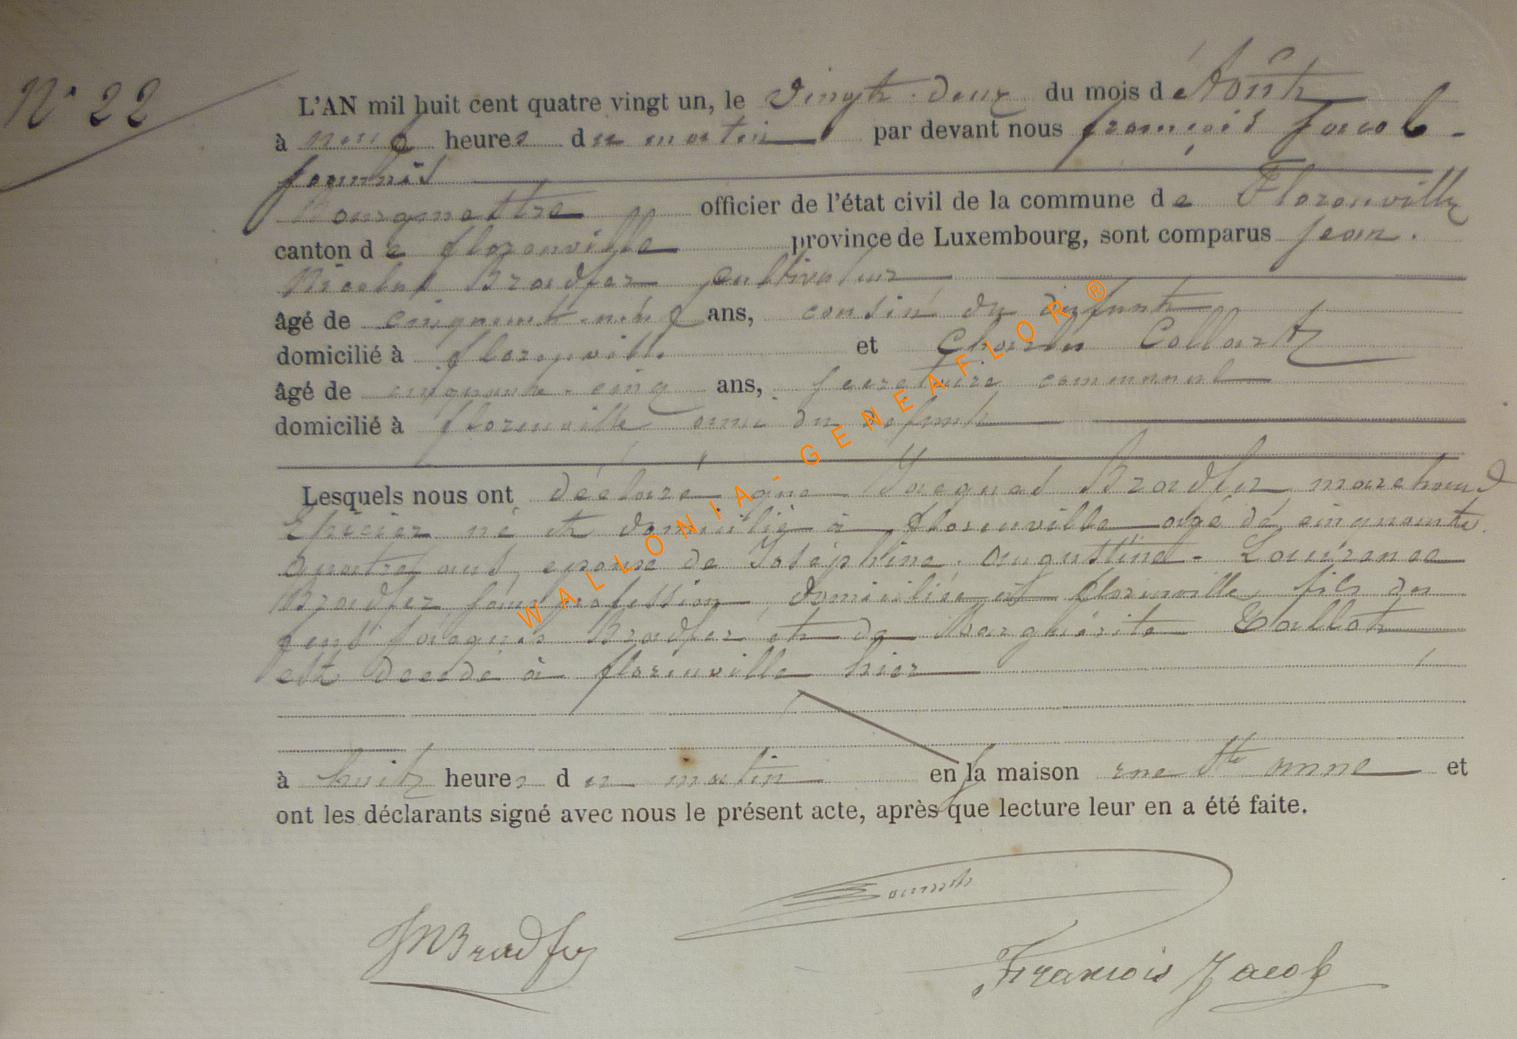 N° 22
L'AN mil huit cent quatre vingt un, le vingt-deux du mois d'Août
à neuf heures du matin par devant nous françois Jacob-
Bourgmestre officier de l'état civil de la commune de Florenville
canton de florenville province de Luxembourg, sont comparus Jean.
Nicolas Bradfer cultivateur
âgé de cinquante-neuf ans, cousin du defunt
domicilié à florenville et Charles Collart
âgé de cinquante-cinq ans, secretaire communal
domicilié à florenville ami du defunt
Lesquels nous ont déclaré que Jacques Bradfer marchand
Epicier né et domicilié à florenville agé de cinquante
quatre ans, epoux de Joséphine Augustine-Lourance
Bradfer sans profession, domiciliée à florenville, fils de
feus Jacques Bradfer et de Marguérite Collot
est decedé à florenville hier
à huit heures du matin en la maison rue Ste anne et
ont les déclarants signé avec nous le présent acte, après que lecture leur en a été faite.
JNBradfer
François Jacob
WALLONIA-GENEAFLOR ®